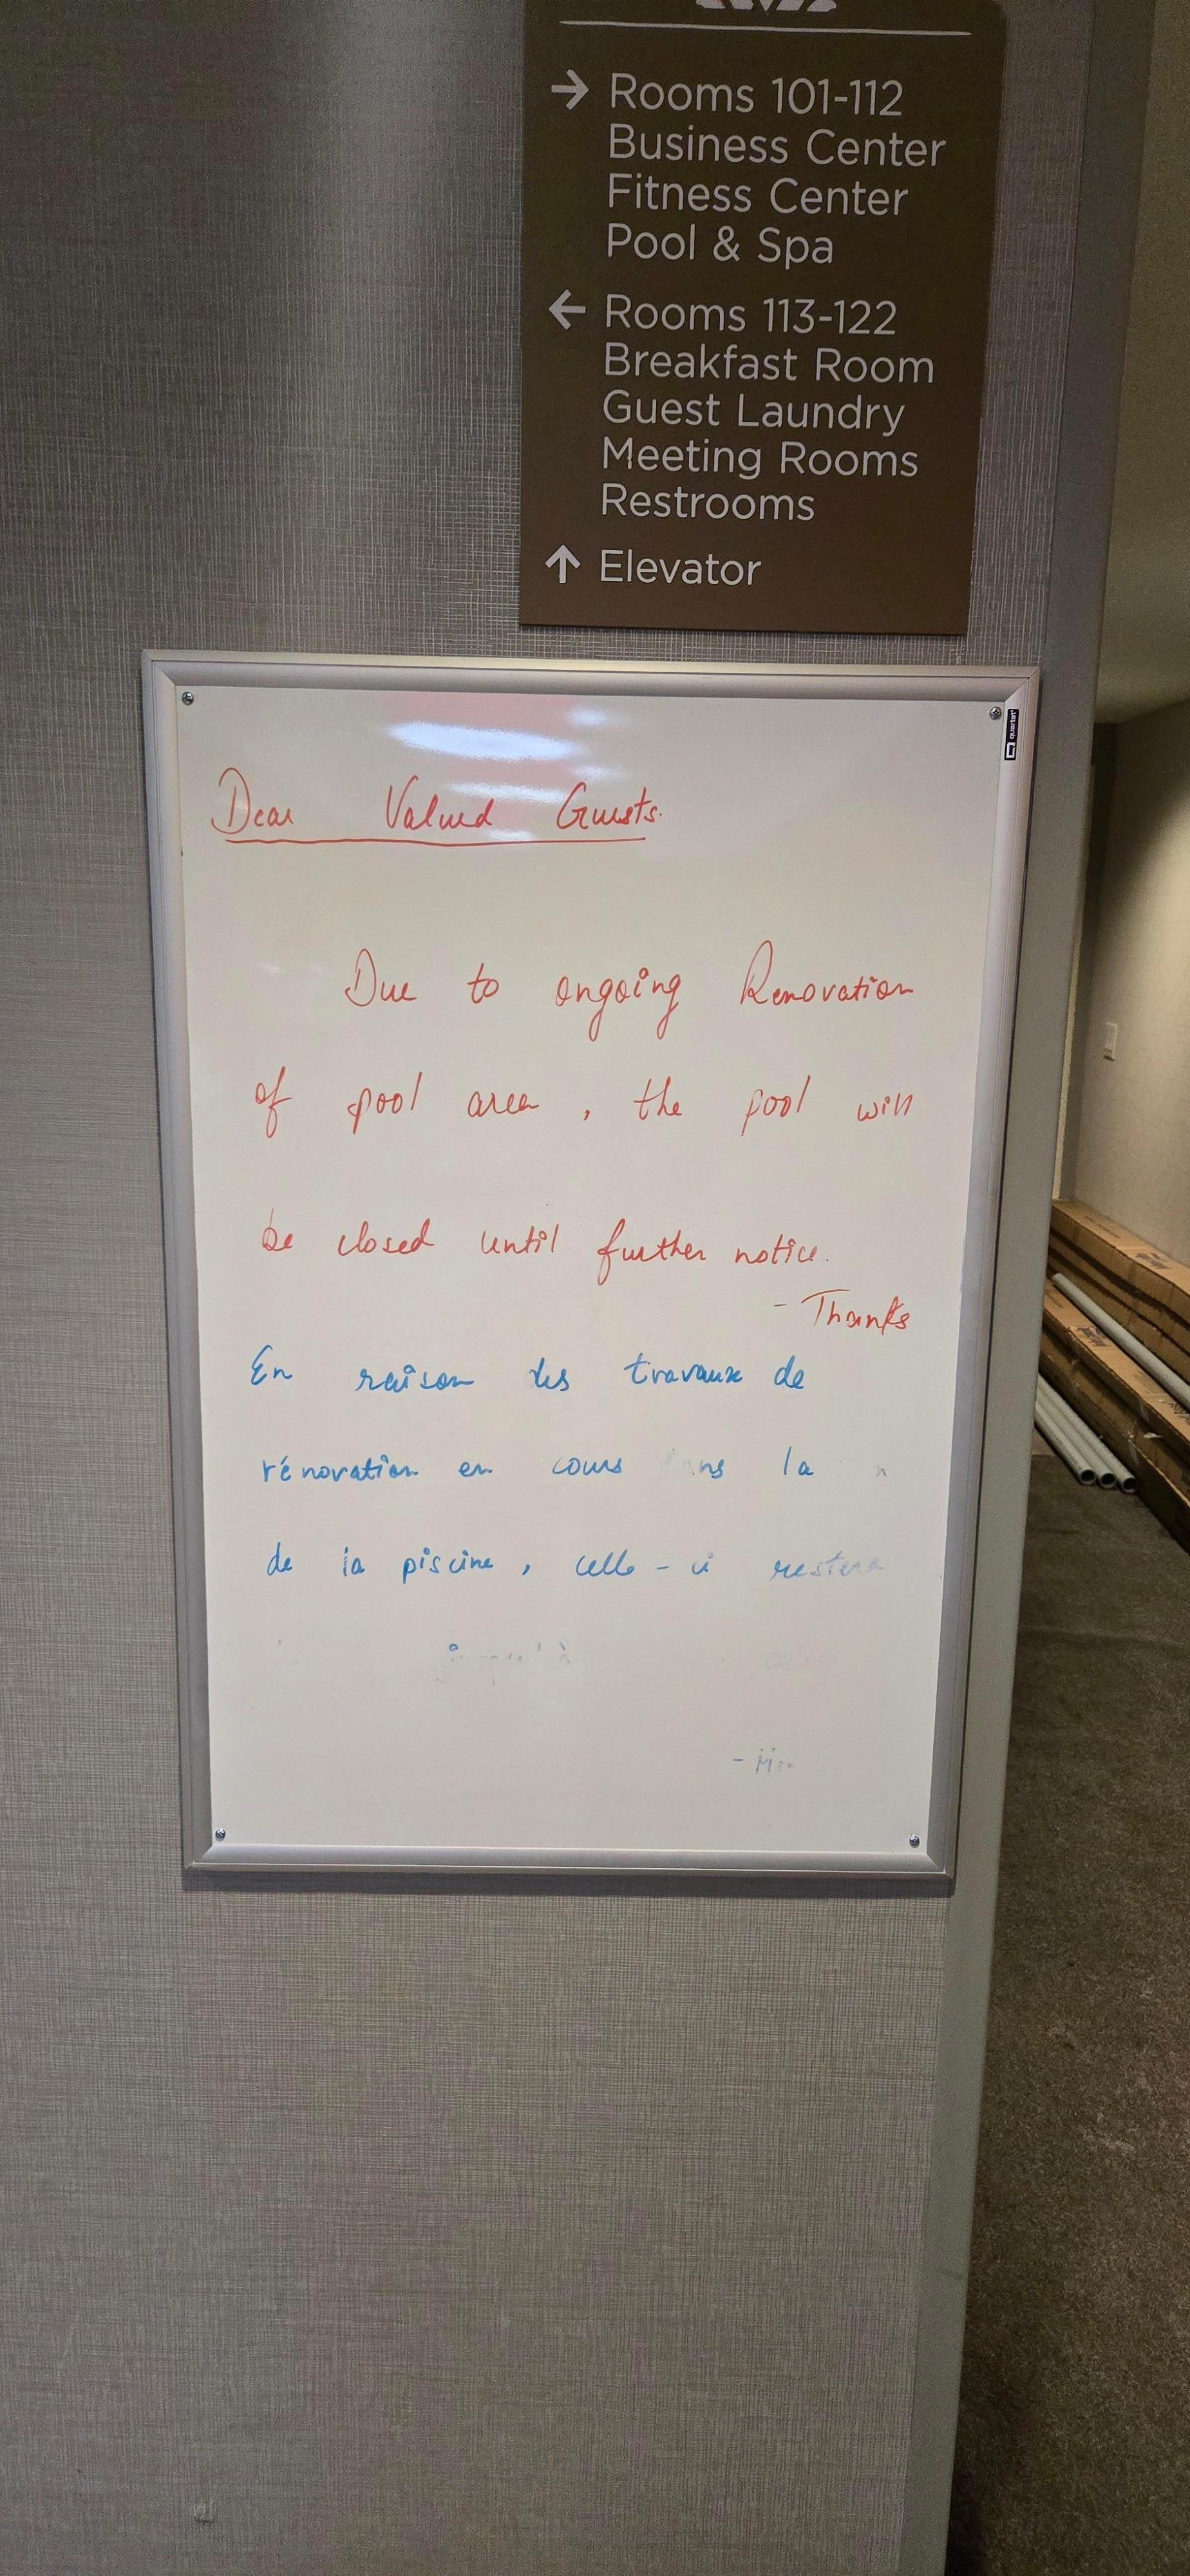 → Rooms 101-112
Business Center
Fitness Center
Pool & Spa
← Rooms 113-122
Breakfast Room
Guest Laundry
Meeting Rooms
Restrooms
↑ Elevator
quartet
Dear Valued Guests.
Due to ongoing Renovation
of pool area, the pool will
be closed until further notice.
- Thanks
En raison des travaux de
rénovation en cours la
de la piscine, celle-ci restera
jusqu'à